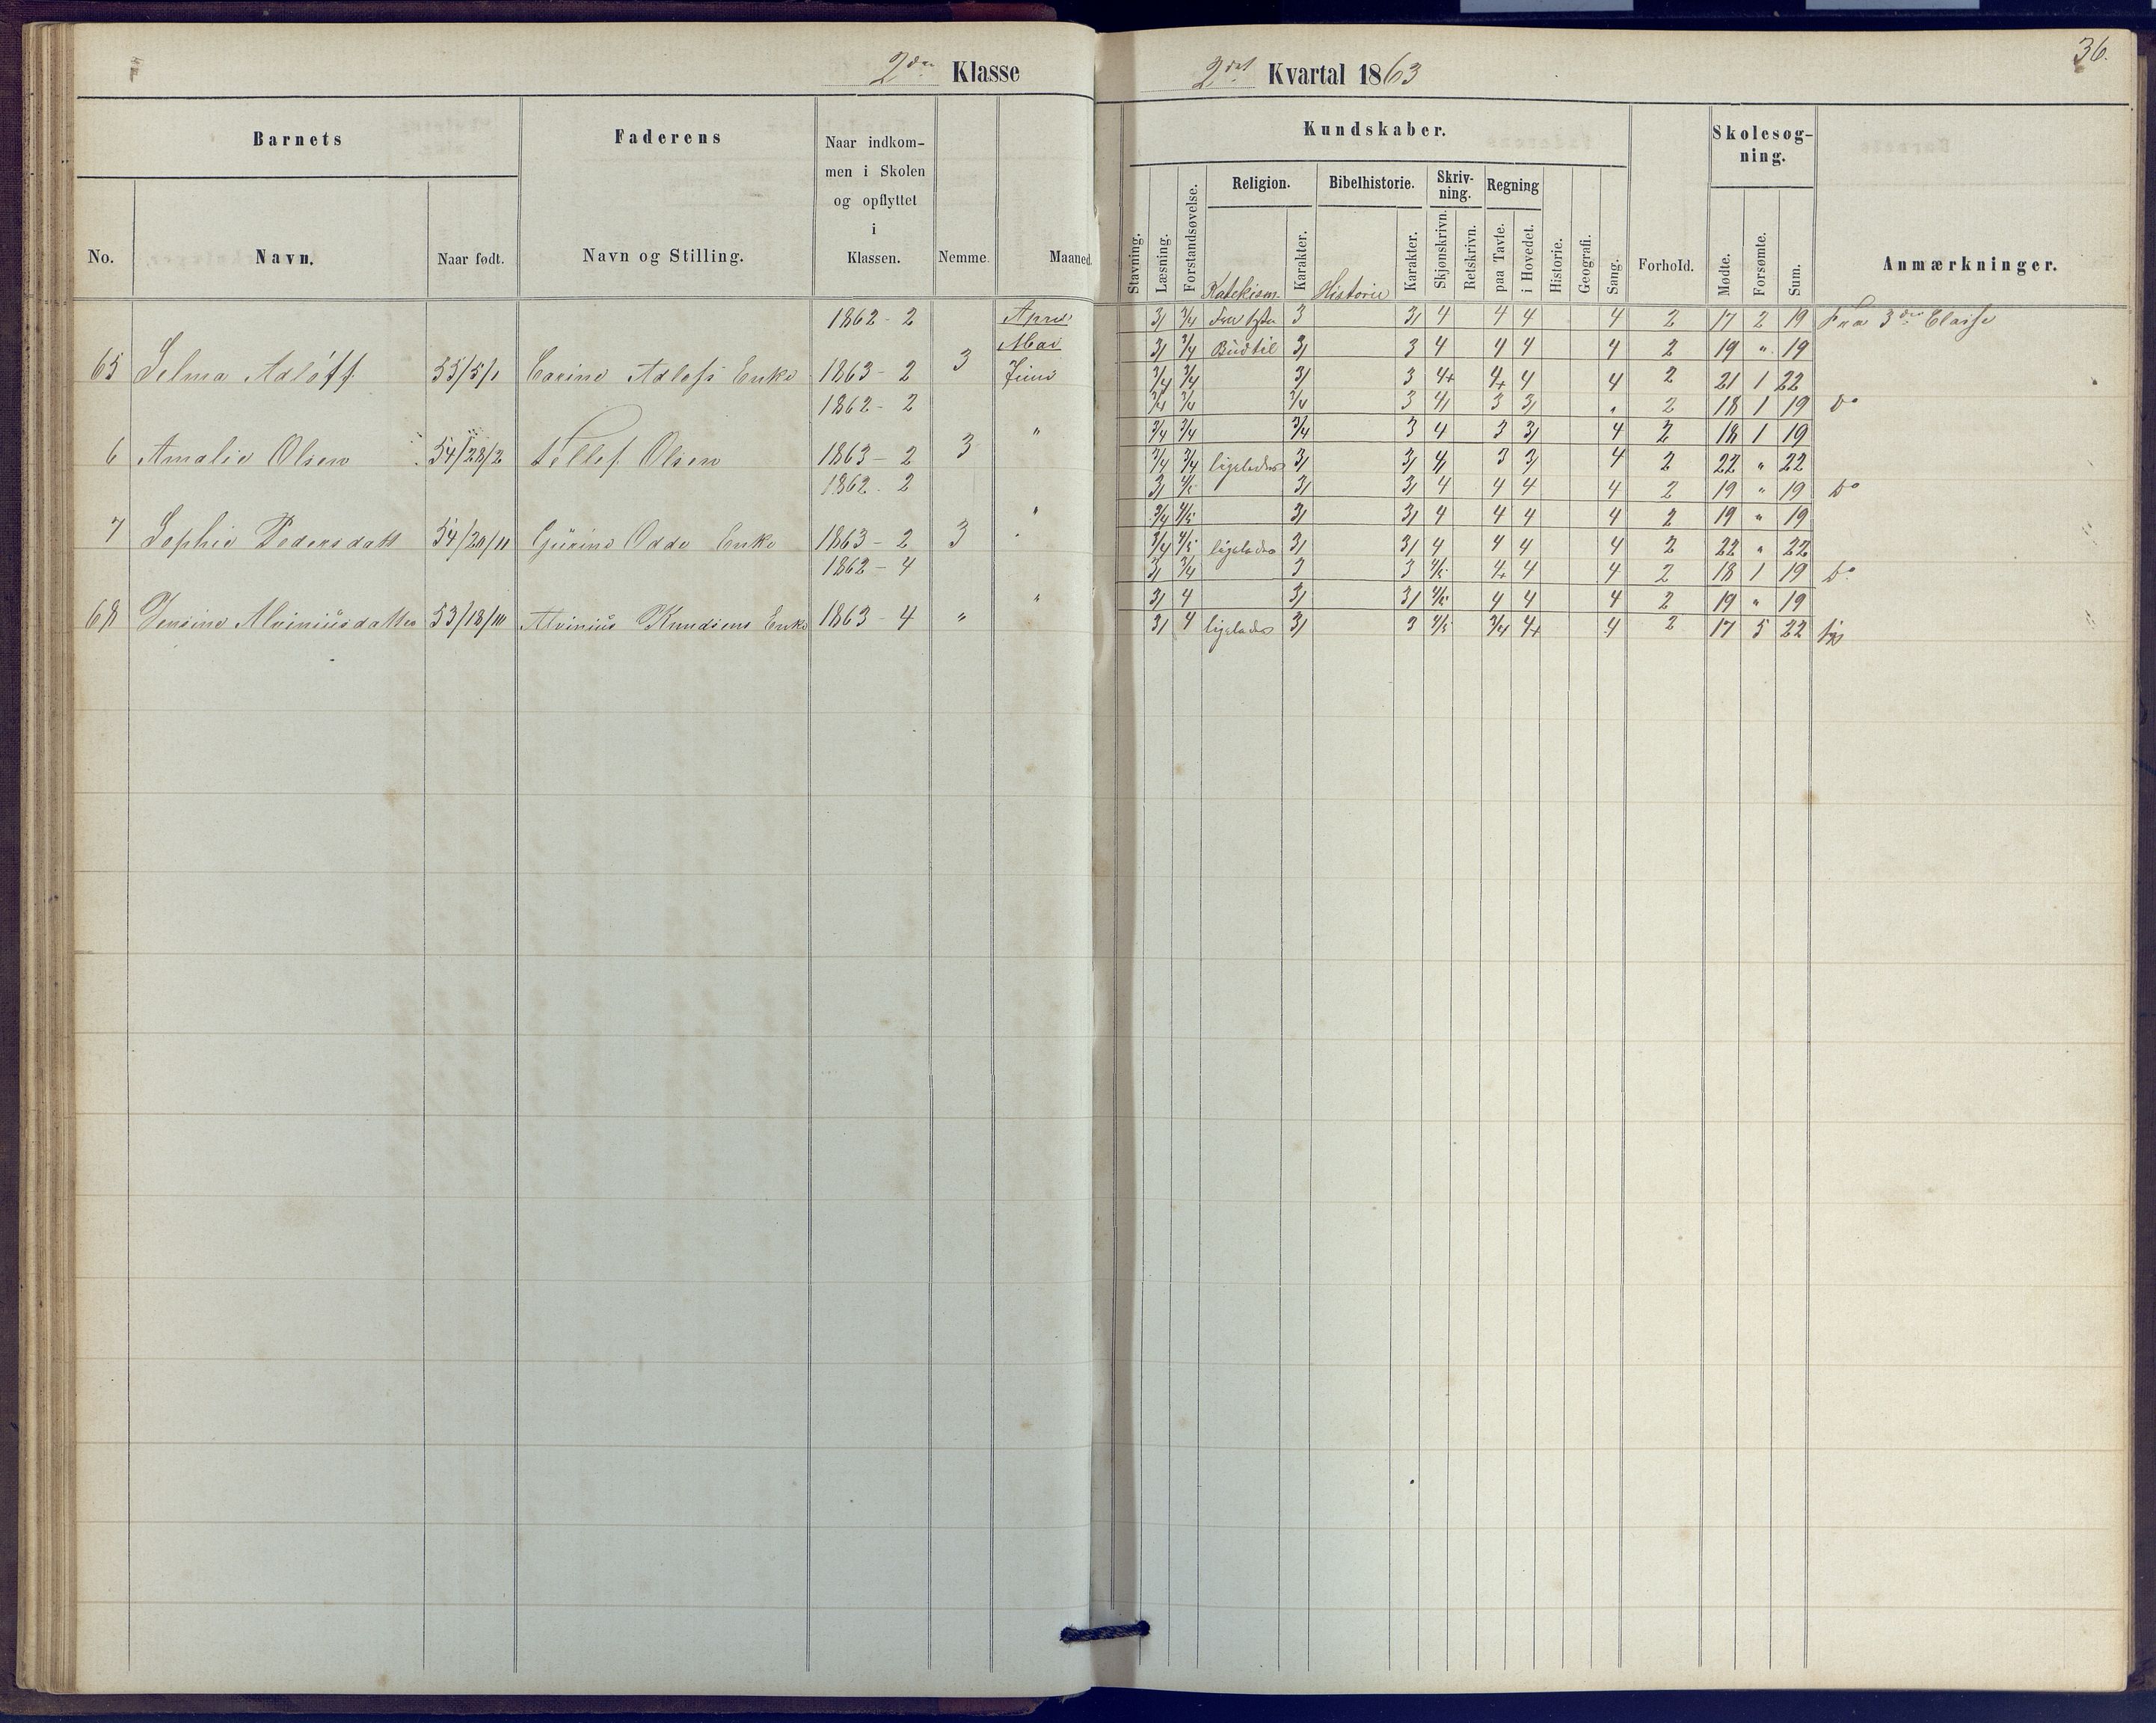 36.
2den Klasse 2det Kvartal 1863
Barnets Faderens Naar indkom-
men i Skolen
og opflyttet
i
Klassen. Nemme. Maaned.
No. Navn. Naar født. Navn og Stilling.
Kundskaber. Skolesøg-
ning.
Religion. Bibelhistorie. Skriv-
ning. Regning
Stavning. Læsning. Forstandsøvelse. Katekism. Karakter. Historie Karakter. Skjønskrivn. Retskrivn. paa Tavle. i Hovedet. Historie. Geografi. Sang. Forhold. Mødte. Forsømte. Sum. Anmærkninger.
1862 - 2 April 3/ 3/4 Fra 1ste 3 3/ 4 4 4 4 2 17 2 19 Fra 3die Classe
Mai 3/ 3/4 Bud til 3/ 3 4 4 4 4 2 19 " 19
65 Selma Adloff 55/5/1 Carine Adlofs Enke 1863 - 2 3 Juni 3/4 3/4 3/ 3 4+ 4+ 4 4 2 21 1 22
1862 - 2 3/4 3/4 3/4 3 4/ 3 3/ " 2 18 1 19 do
" 3/4 3/4 3/4 3 4 3 3/ 4 2 18 1 19
6 Amalie Olsen 54/28/2 Tellef Olsen 1863 - 2 3 3/4 3/4 ligeledes 3/ 3/ 4/ 3 3/ 4 2 22 " 22
1862 - 2 3/ 4/5 3/ 3/ 4 4 4 4 2 19 " 19 do
" 3/4 4/5 3/ 3/ 4 4 4 4 2 19 " 19
7 Sophie Pedersdatt 54/20/11 Gurine Odde Enke 1863 - 2 3 3/4 4/5 ligeledes 3/ 3/ 4 4 4 4 2 22 " 22
1862 - 4 3/ 3/4 3 3 4/5 4+ 4 4 2 18 1 19 do
" 3/ 4 3/ 3/ 4/5 4 4 4 2 19 " 19
68 Jensine Alviniusdatter 53/18/10 Alvinius Knudsens Enke 1863 - 4 " 3/ 4 ligeledes 3/ 3 4/5 3/4 4+ 4 2 17 5 22